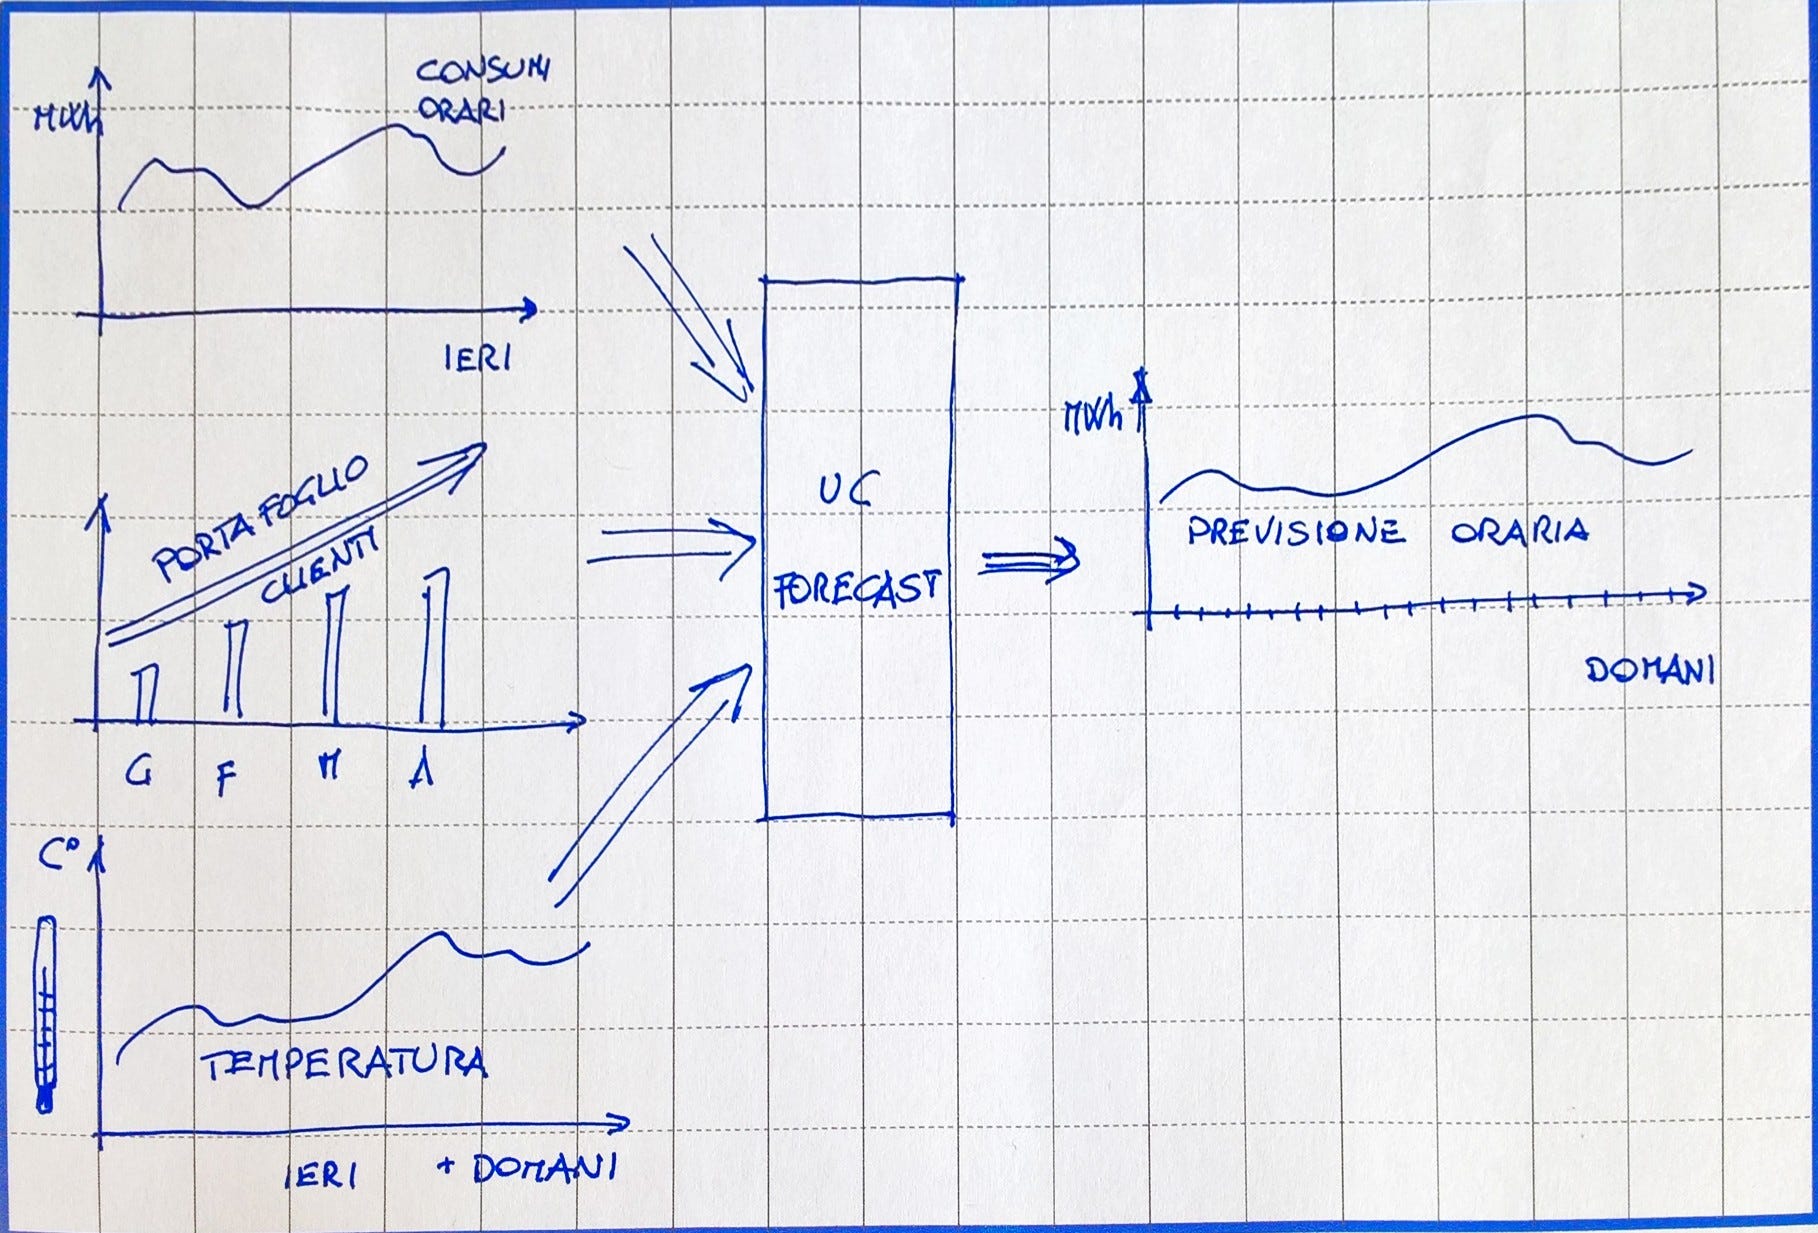 MWh
CONSUMI
ORARI
IERI
PORTAFOGLIO
CLIENTI
G F M A
C°
TEMPERATURA
IERI + DOMANI
UC
FORECAST
MWh
PREVISIONE ORARIA
DOMANI